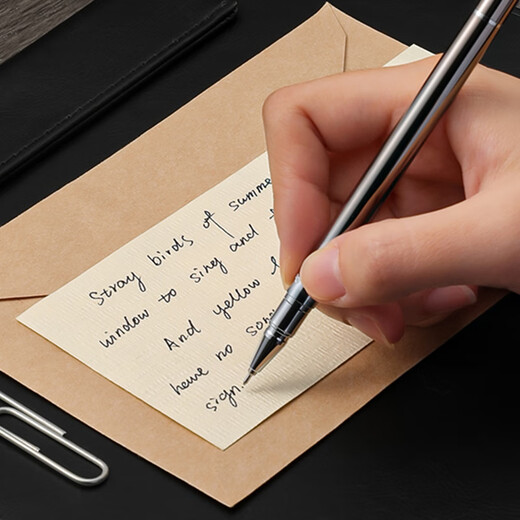 Stray birds of summe
window to sing and t
And yellow l
have no so
sign.